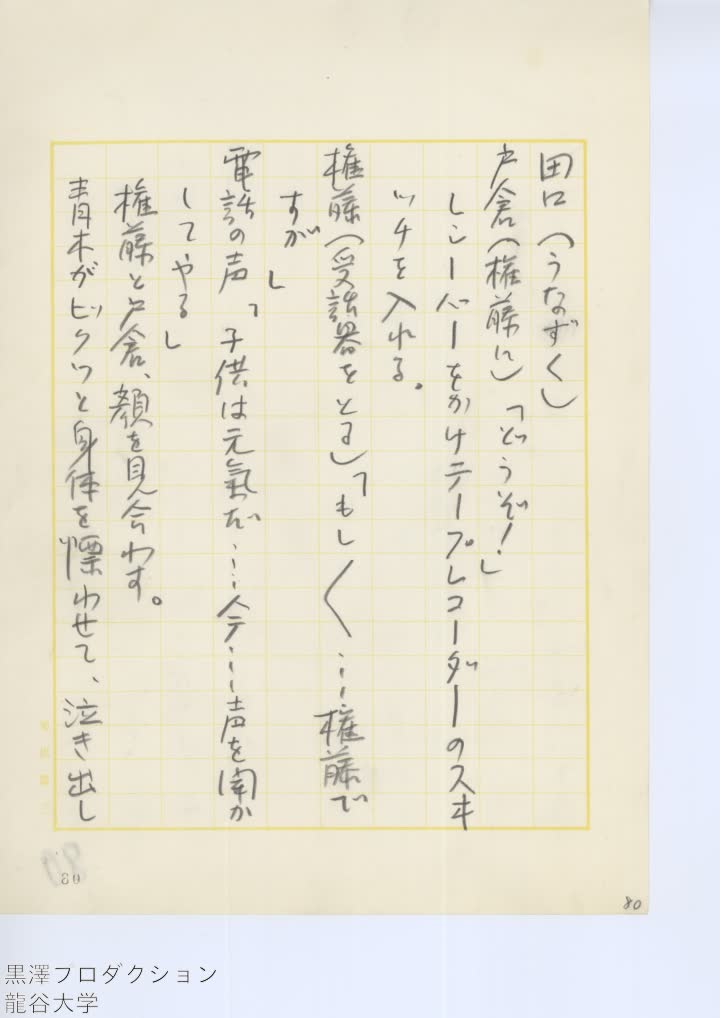 田口(うなずく)
戸倉(権藤に)「どうぞ!」
レシーバーをかけテープレコーダーのスヰ
ッチを入れる。
権藤(受話器をとる)「もし〱……権藤で
すが」
電話の声「子供は元氣だ……今……声を聞か
してやる」
権藤と戸倉、顔を見合わす。
青木がビクッと身体を慄わせて、泣き出し
80
80
黒澤プロダクション
龍谷大学